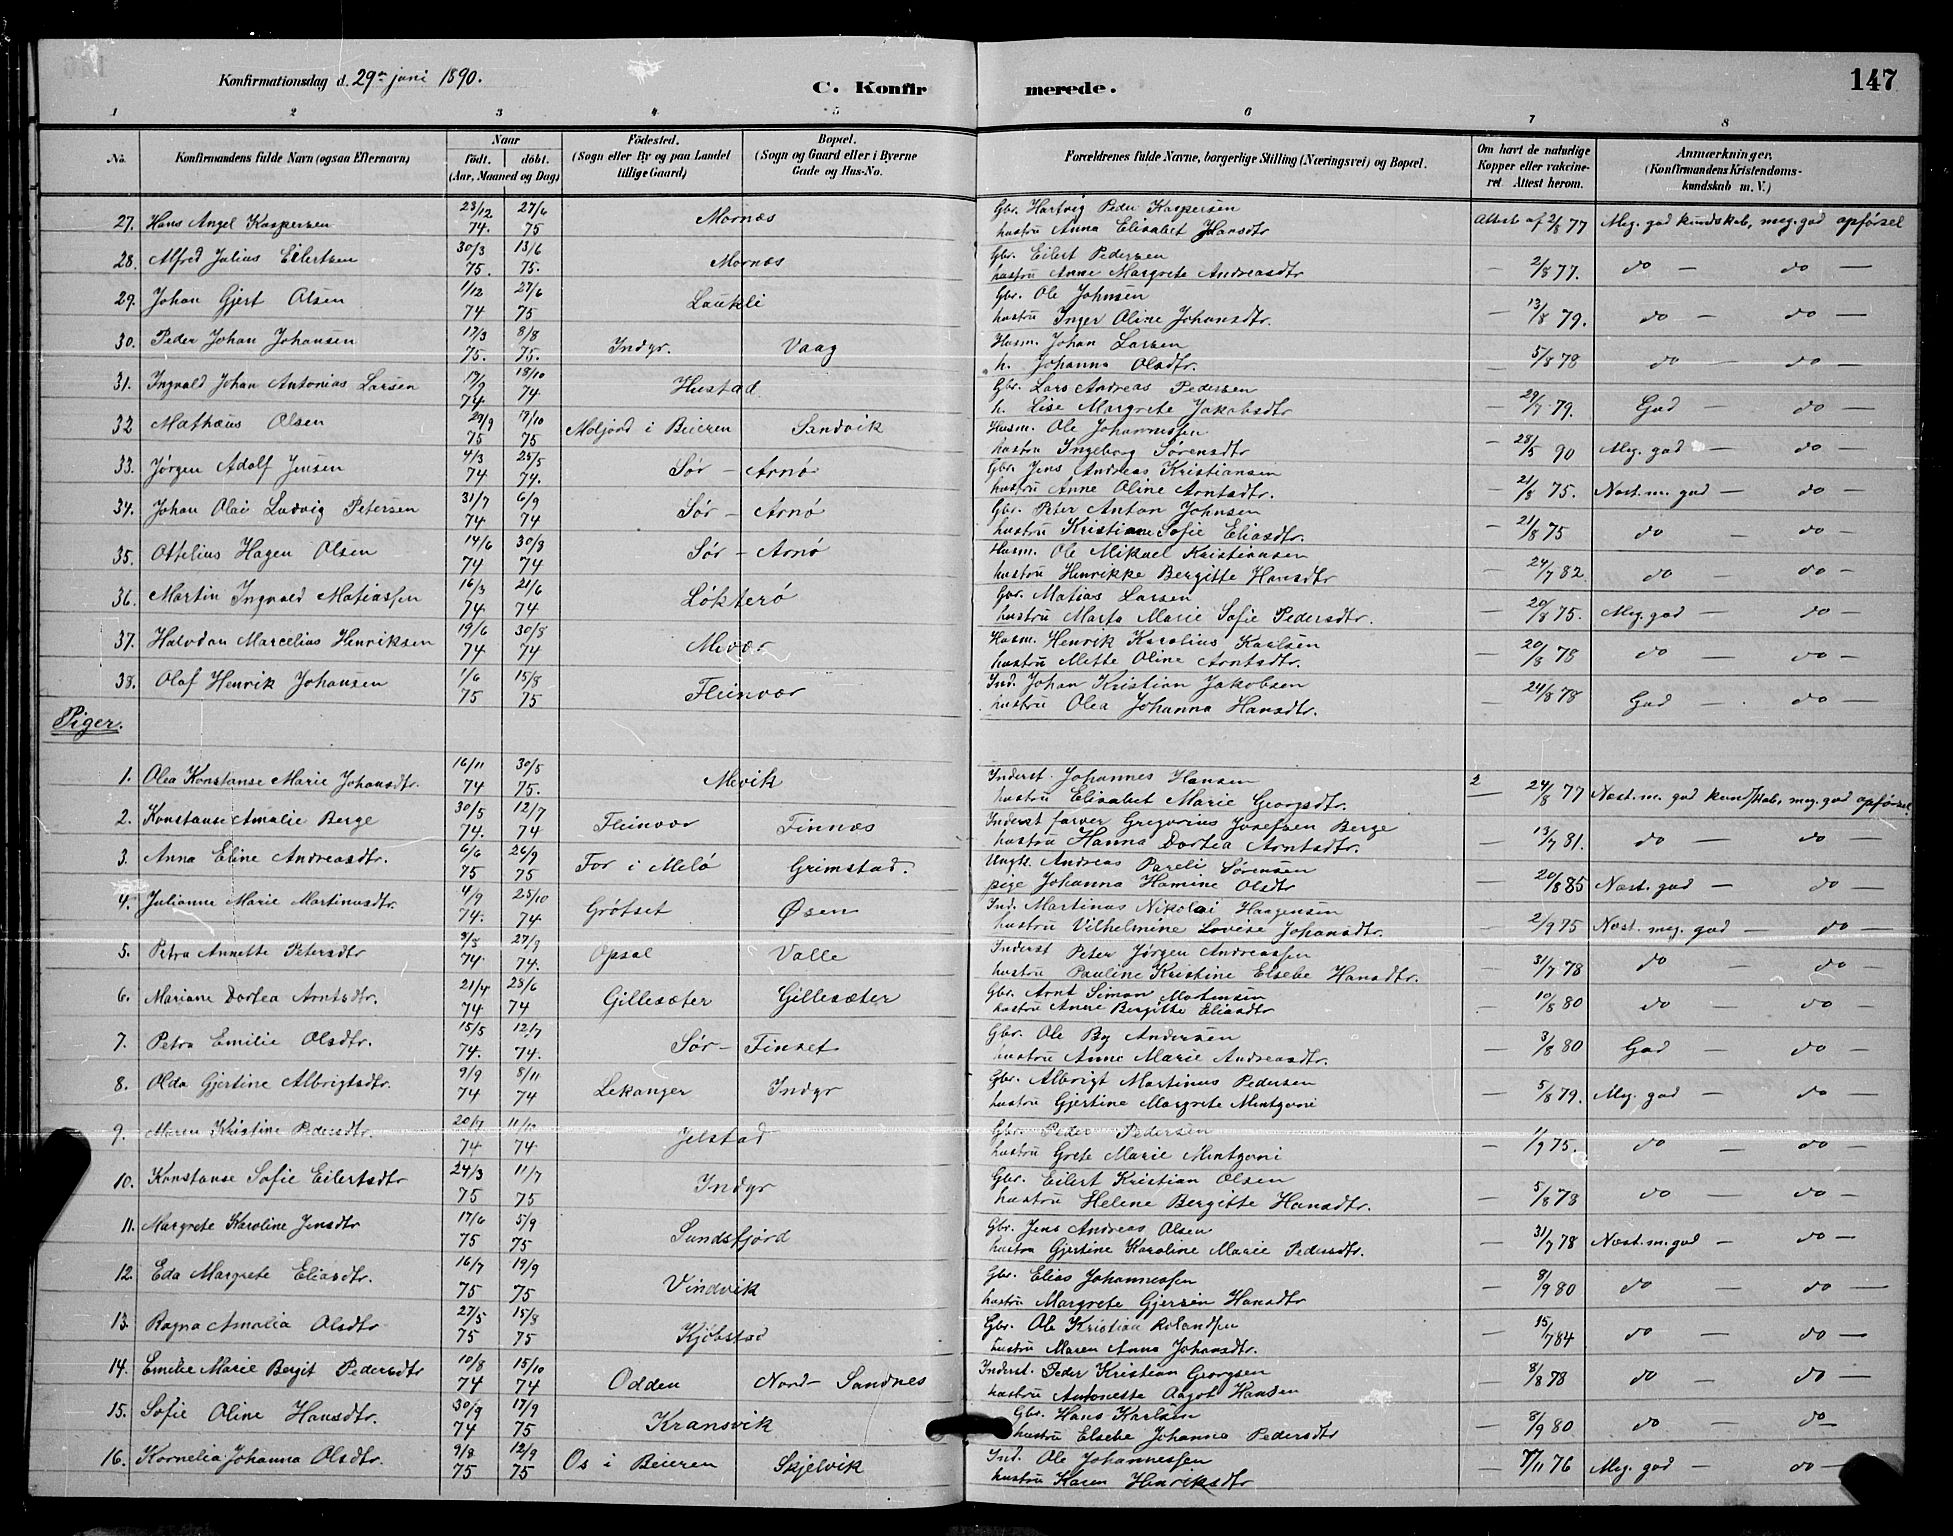 147
Konfirmationsdag d. 29de juni 1890.
C. Konfirmerede.
1 2 3 4 5 6 7 8
No. Konfirmandens fulde Navn (ogsaa Efternavn) Naar født. døbt. (Aar, Maaned og Dag) Födested. (Sogn eller By og paa Landet tillige Gaard) Bopæl. (Sogn og Gaard eller i Byerne Gade og Hus-No. Forældrenes fulde Navne, borgerlige Stilling (Næringsvei) og Bopæl. Om havt de naturlige Kopper eller vakcineret Attest herom. Anmærkninger. (Konfirmandens Kristendomskundskab m. V.)
27. Hans Angel Kaspersen 23/12 74. 27/6 75 Mornæs Gbr. Hartvig Peder Kaspersen hustru Anna Elisabet Hansdtr Attest af 2/8 77 Meg. god kundskab, meg. god opførsel
28. Alfred Julius Eilertsen 30/3 75. 13/6 75. Mornæs Gbr. Eilert Pedersen hustru Anne Margrete Andreasdtr — 2/8 77. do — do —
29. Johan Gjert Olsen 1/12 74 27/6 75 Laukli Gbr. Ole Johnsen hustru Inger Oline Johansdtr. — 13/8 79. do — do —
30. Peder Johan Johansen 17/3 75. 8/8 75. Indyr. Vaag Husm. Johan Larsen h. Johanna Olsdtr. — 5/8 78 do — do —
31. Ingvald Johan Antonias Larsen 17/2 74 18/10 74 Hustad Gbr. Lars Andreas Pedersen h. Lise Margrete Jakobsdtr — 29/7 79. God — do —
32 Mathæus Olsen 29/9 75 7/10 75 Moljord i Beieren Sandvik Husm. Ole Johannessen hustru Ingeborg Sørensdtr — 28/5 90 Meg. god — do —
33. Jørgen Adolf Jensen 4/3 74 25/5 74. Sør-Arnø Gbr. Jens Andreas Kristiansen hustru Anne Oline Arntsdtr. — 21/8 75. Næst. m. god — do —
34. Johan Olai Ludvig Petersen 31/7 74 6/9 74 Sør-Arnø Gbr. Peter Anton Johnsen hustru Kristiane Sofie Eliasdtr. — 21/8 75 do — do —
35. Ottelius Hagen Olsen 14/6 74 30/8 74 Sør-Arnø Husm. Ole Mikael Kristiansen hustru Henrikke Bergitte Hansdtr — 24/7 82. do — do —
36. Martin Ingvald Matiassen 16/3 74. 21/6 74 Løkterø Gbr. Matias Larsen hustru Marta Marie Sofie Pedersdtr. — 20/8 75. Meg. god — do —
37. Halvdan Marcelius Henriksen 19/6 74 30/8 74 Mevær Husm. Henrik Karolius Karlsen hustru Mette Oline Arntsdtr. — 20/8 78 do do —
38. Olaf Henrik Johansen 1/6 75 15/8 75 Fleinvær Ind. Johan Kristian Jakobsen hustru Olea Johanna Hansdtr. — 24/8 78 God — do —
Piger.
1. Olea Konstanse Marie Johansdtr. 16/11 74 30/5 75. Mevik Inderst. Johannes Hansen hustru Elisabet Marie Georgsdtr. 2 — 24/8 77 Næst. m. god kundskab, meg. god opførsel.
2. Konstanse Amalie Berge 30/5 74. 12/7 74 Fleinvær Finnæs Inderst farver Gregorius Josefsen Berge hustru Hanna Dortea Arntsdtr. — 13/7 81. do — do —
3. Anna Eline Andreasdtr. 6/6 75 26/9 75 For i Melø Grimstad. Ungk. Andreas Pareli Sørensen pige Johanna Hamine Olsdtr — 20/8 85 Næst. god — do —
4. Julianne Marie Martinusdtr. 4/9 74. 25/10 74. Grøtset Øsen Ind. Martinus Nikolai Haagensen hustru Vilhelmine Lovise Johansdtr. — 2/9 75 Næst. meg. god — do —
5. Petra Annette Petersdtr 74 27/9 74. Opsal Valle Inderst Peter Jørgen Andreassen hustru Pauline Kristine Elsebe Hansdtr. — 31/7 78 do — do —
6. Mariane Dortea Arntsdtr. 21/4 74 28/6 74 Gillesæter Gillesæter Gbr. Arnt Simon Mortensen hustru Anne Bergitte Eliasdtr 10/8 80 do — do —
7. Petra Emilie Olsdtr. 15/5 74. 12/7 74. Sør-Finset Gbr. Ole By Andersen hustru Anne Marie Andreasdtr. — 3/8 80 God — do —
8. Olda Gjertine Albrigtsdtr. 9/9 74 8/11 74 Lekanger Indyr Gbr. Albrigt Martinus Pedersen hustru Gjertine Margrete Mentzoni — 5/8 79. Meg. god — do —
9. Maren Kristine Pedersdtr. 20/7 74 11/10 74. Jelstad Gbr. Peder Pedersen hustru Grete Marie Mentzoni — 1/9 75. do — do —
10. Konstanse Sofie Eilertsdtr 24/3 75 11/7 75 Indyr Gbr. Eilert Kristian Olsen hustru Helene Bergitte Hansdtr. — 5/8 78 do — do —
11. Margrete Karoline Jensdtr 17/6 75 5/9 75 Sundsfjord Gbr. Jens Andreas Olsen hustru Gjertine Karoline Marie Pedersdtr. — 31/7 78 Næst. m. god — do —
12. Eda Margrete Eliasdtr. 16/7 75 19/9 75 Vindvik Gbr. Elias Johannessen hustru Margrete Gjersen Hansdtr — 8/9 80 do — do —
13. Ragna Amalia Olsdtr 27/5 75 15/8 75 Kjøbstad Gbr. Ole Kristian Rolandsen hustru Maren Anna Johansdtr. — 15/7 84 do — do —
14. Emelie Marie Bergit Pedersdtr 10/8 74 15/10 74 Odden Nord-Sandnes Inderst. Peder Kristian Georgsen hustru Antonette Aagot Hansen — 8/8 78 do — do —
15. Sofie Oline Hansdtr. 30/9 74 17/9 75 Kransvik Gbr. Hans Karlsen hustru Elsebe Johanna Pedersdtr — 8/9 80 do — do —
16. Kornelia Johanna Olsdtr. 9/8 75 12/9 75 Os i Beieren Skjelvik Ind. Ole Johannessen hustru Karen Henriksdtr — 7/11 76 Meg. god — do —